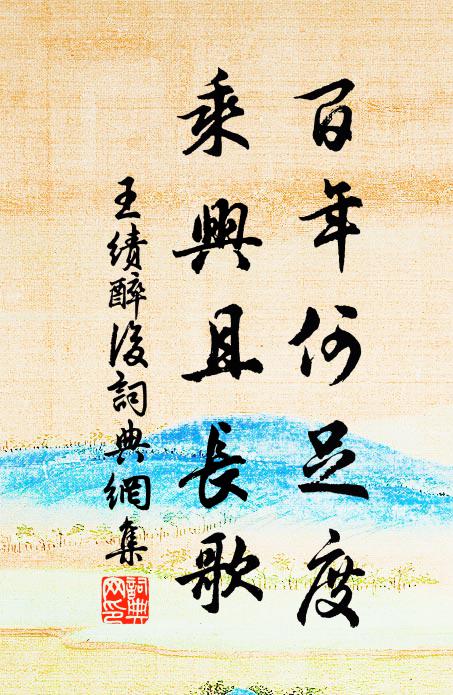 百年何足度
乘興且長歌
王績醉後詞典網集
詞典網印